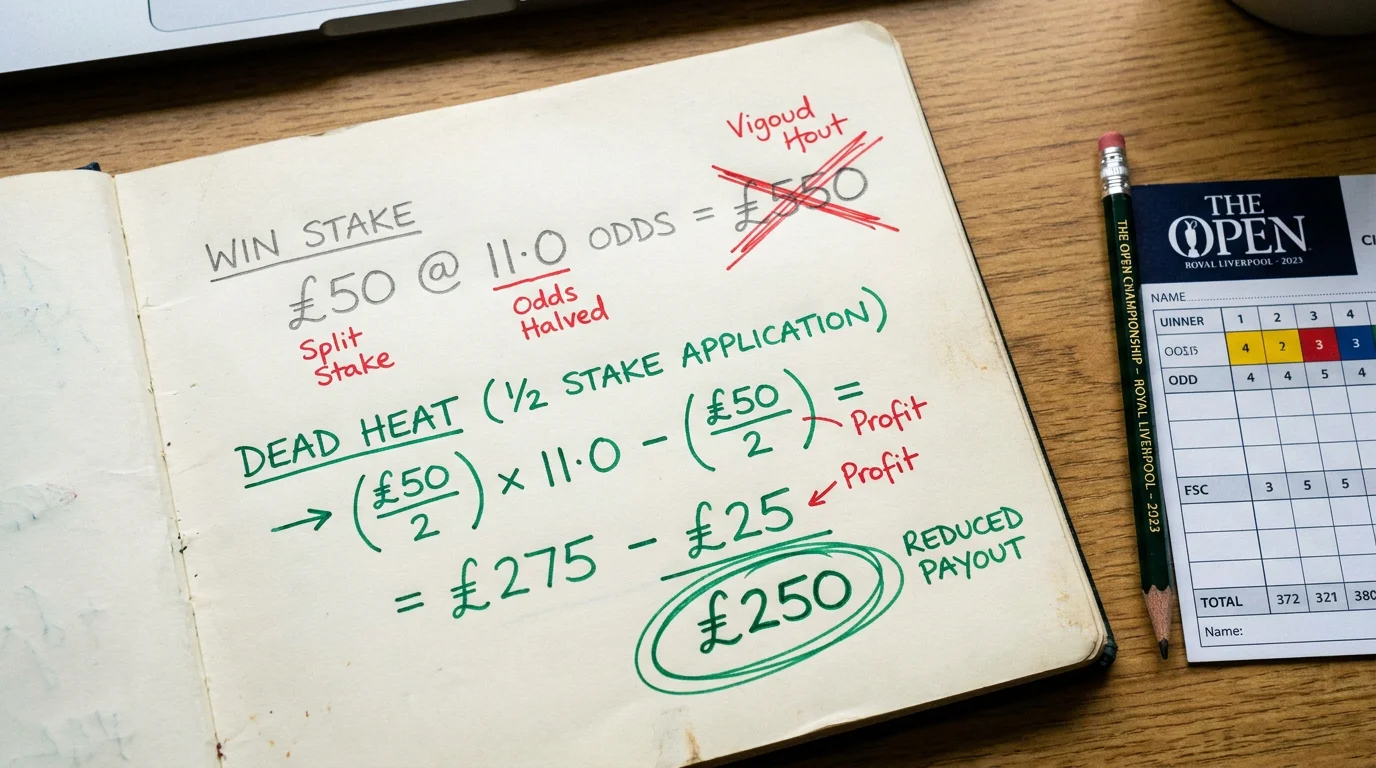 Vigoud
Hout
WIN STAKE
£50 @ 11.0 ODDS = £550
Split
Stake
Odds
Halved
DEAD HEAT (1/2 STAKE APPLICATION)
→ (£50/2) × 11.0 − (£50/2) =
Profit
= £275 − £25
Profit
£250
REDUCED
PAYOUT
THE OPEN CHAMPIONSHIP - ROYAL LIVERPOOL - 2023
THE
OPEN
ROYAL LIVERPOOL - 2023
NAME
UINNER 1 2 3 4
4 2 3 3
ODD 4 4 5 4
FSC 3 5 5
TOTAL 372 321 380
Name: